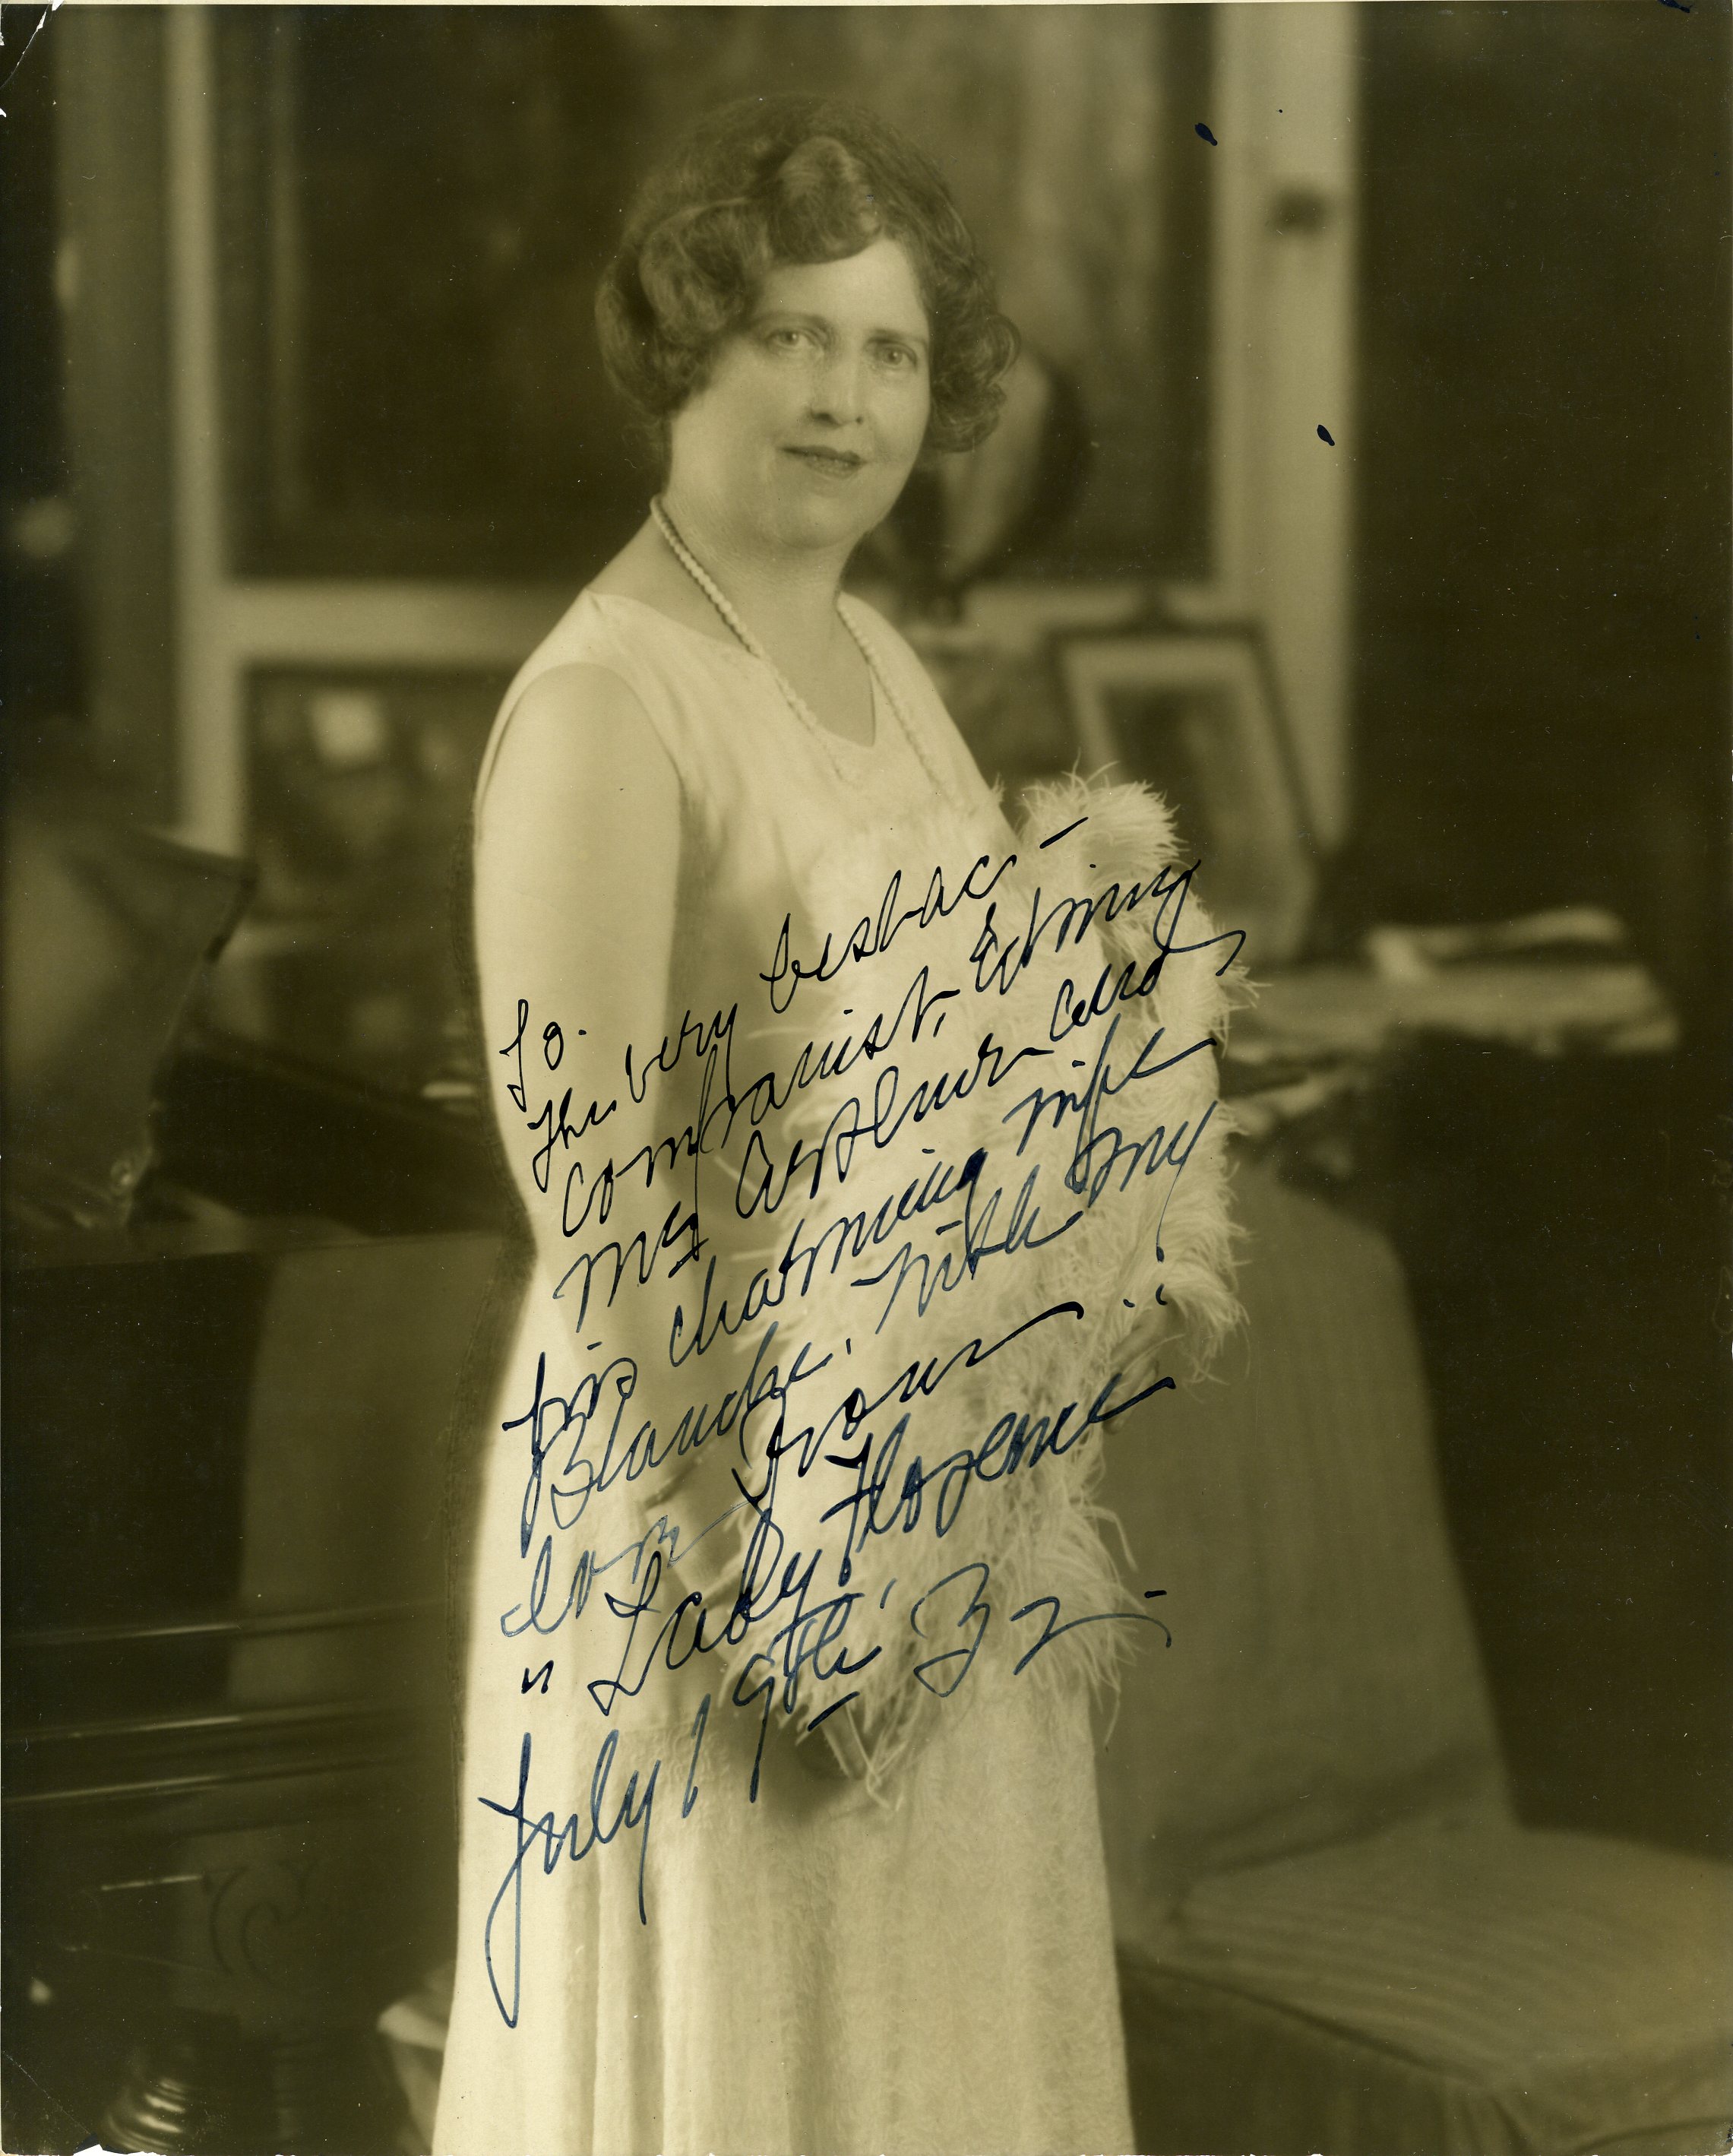 To
the very best ac-
companist, Edwin
McArthur and
his charming wife
Blanche. With my
love from:
"Lady Florence
July 19th, 32-